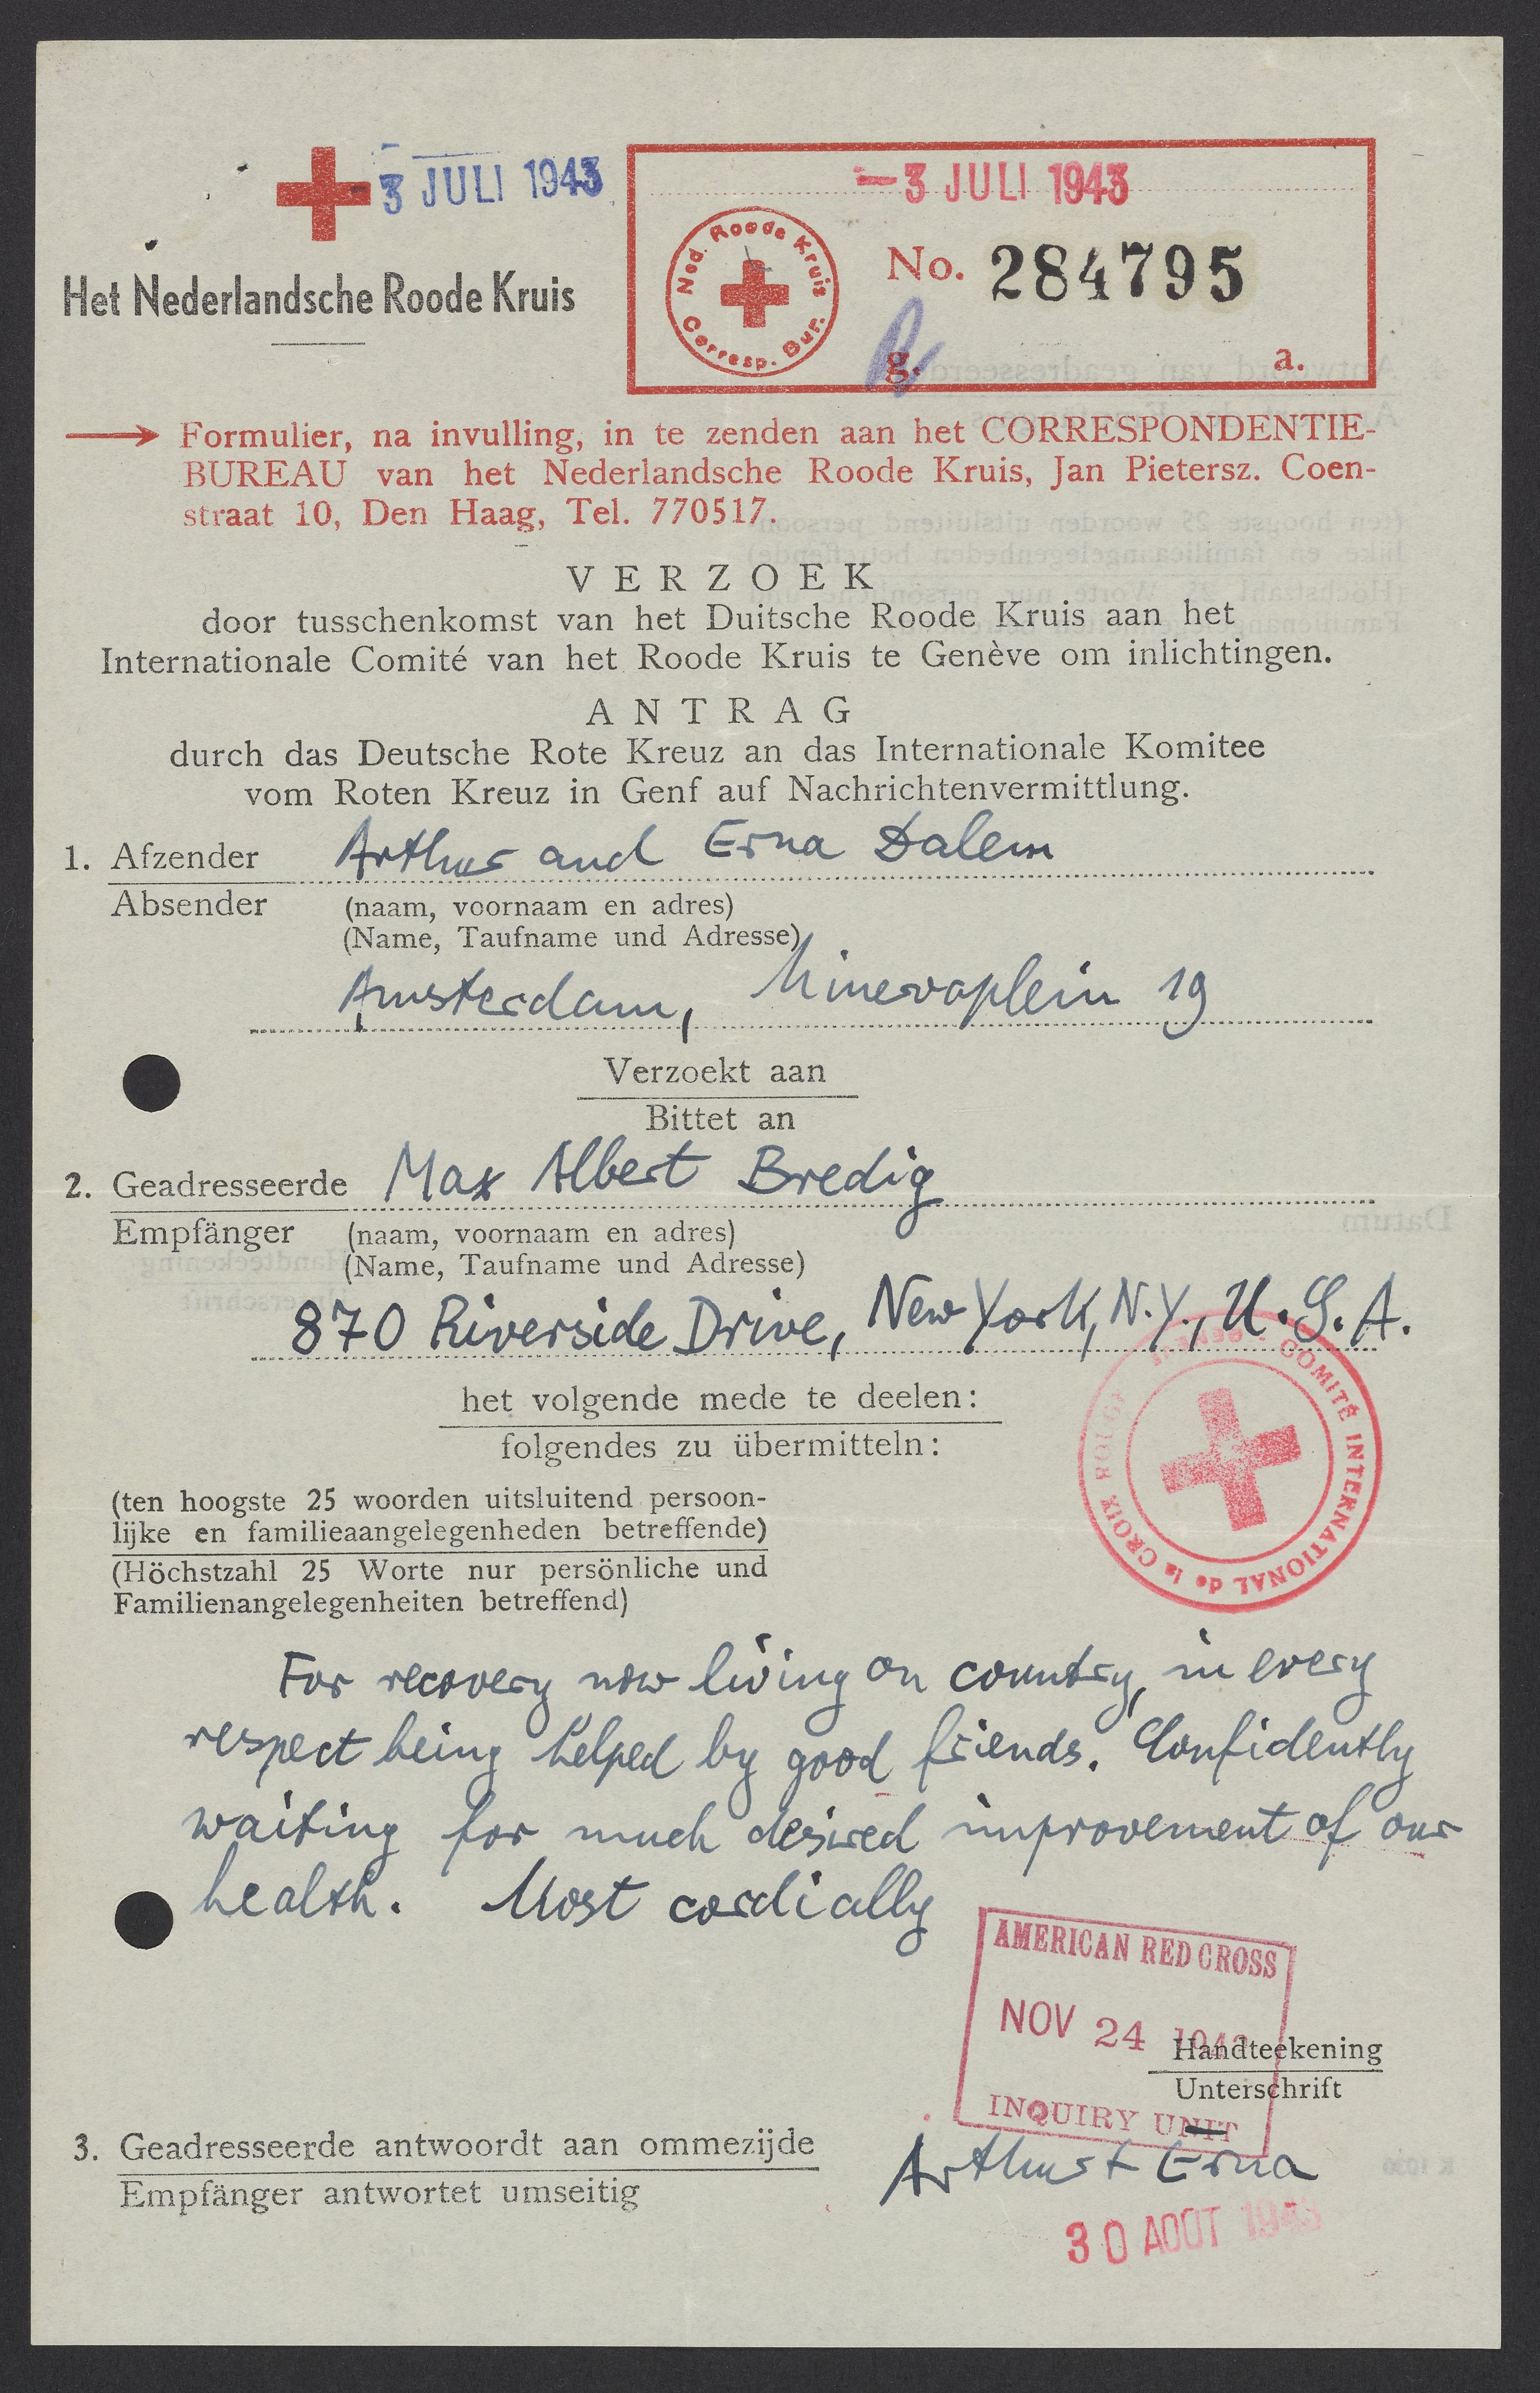 3 JULI 1943
Het Nederlandsche Roode Kruis
-3 JULI 1943
Ned. Roode Kruis
Corresp. Bur.
No. 284795
g. a.
Formulier, na invulling, in te zenden aan het CORRESPONDENTIE-
BUREAU van het Nederlandsche Roode Kruis, Jan Pietersz. Coen-
straat 10, Den Haag, Tel. 770517.
VERZOEK
door tusschenkomst van het Duitsche Roode Kruis aan het
Internationale Comité van het Roode Kruis te Genève om inlichtingen.
ANTRAG
durch das Deutsche Rote Kreuz an das Internationale Komitee
vom Roten Kreuz in Genf auf Nachrichtenvermittlung.
1. Afzender Arthur and Erna Dalem
Absender (naam, voornaam en adres)
(Name, Taufname und Adresse)
Amsterdam, Minervaplein 19
Verzoekt aan
Bittet an
2. Geadresseerde Max Albert Bredig
Empfänger (naam, voornaam en adres)
(Name, Taufname und Adresse)
870 Riverside Drive, New York, N.Y., U.S.A.
het volgende mede te deelen:
folgendes zu übermitteln:
COMITÉ INTERNATIONAL de la CROIX
(ten hoogste 25 woorden uitsluitend persoon-
lijke en familieaangelegenheden betreffende)
(Höchstzahl 25 Worte nur persönliche und
Familienangelegenheiten betreffend)
For recovery now living on country, in every
respect being helped by good friends. Confidently
waiting for much desired improvement of our
health. Most cordially
AMERICAN RED CROSS
NOV 24 1943
INQUIRY UNIT
Handteekening
Unterschrift
3. Geadresseerde antwoordt aan ommezijde
Empfänger antwortet umseitig
Arthur + Erna
30 AOUT 1943